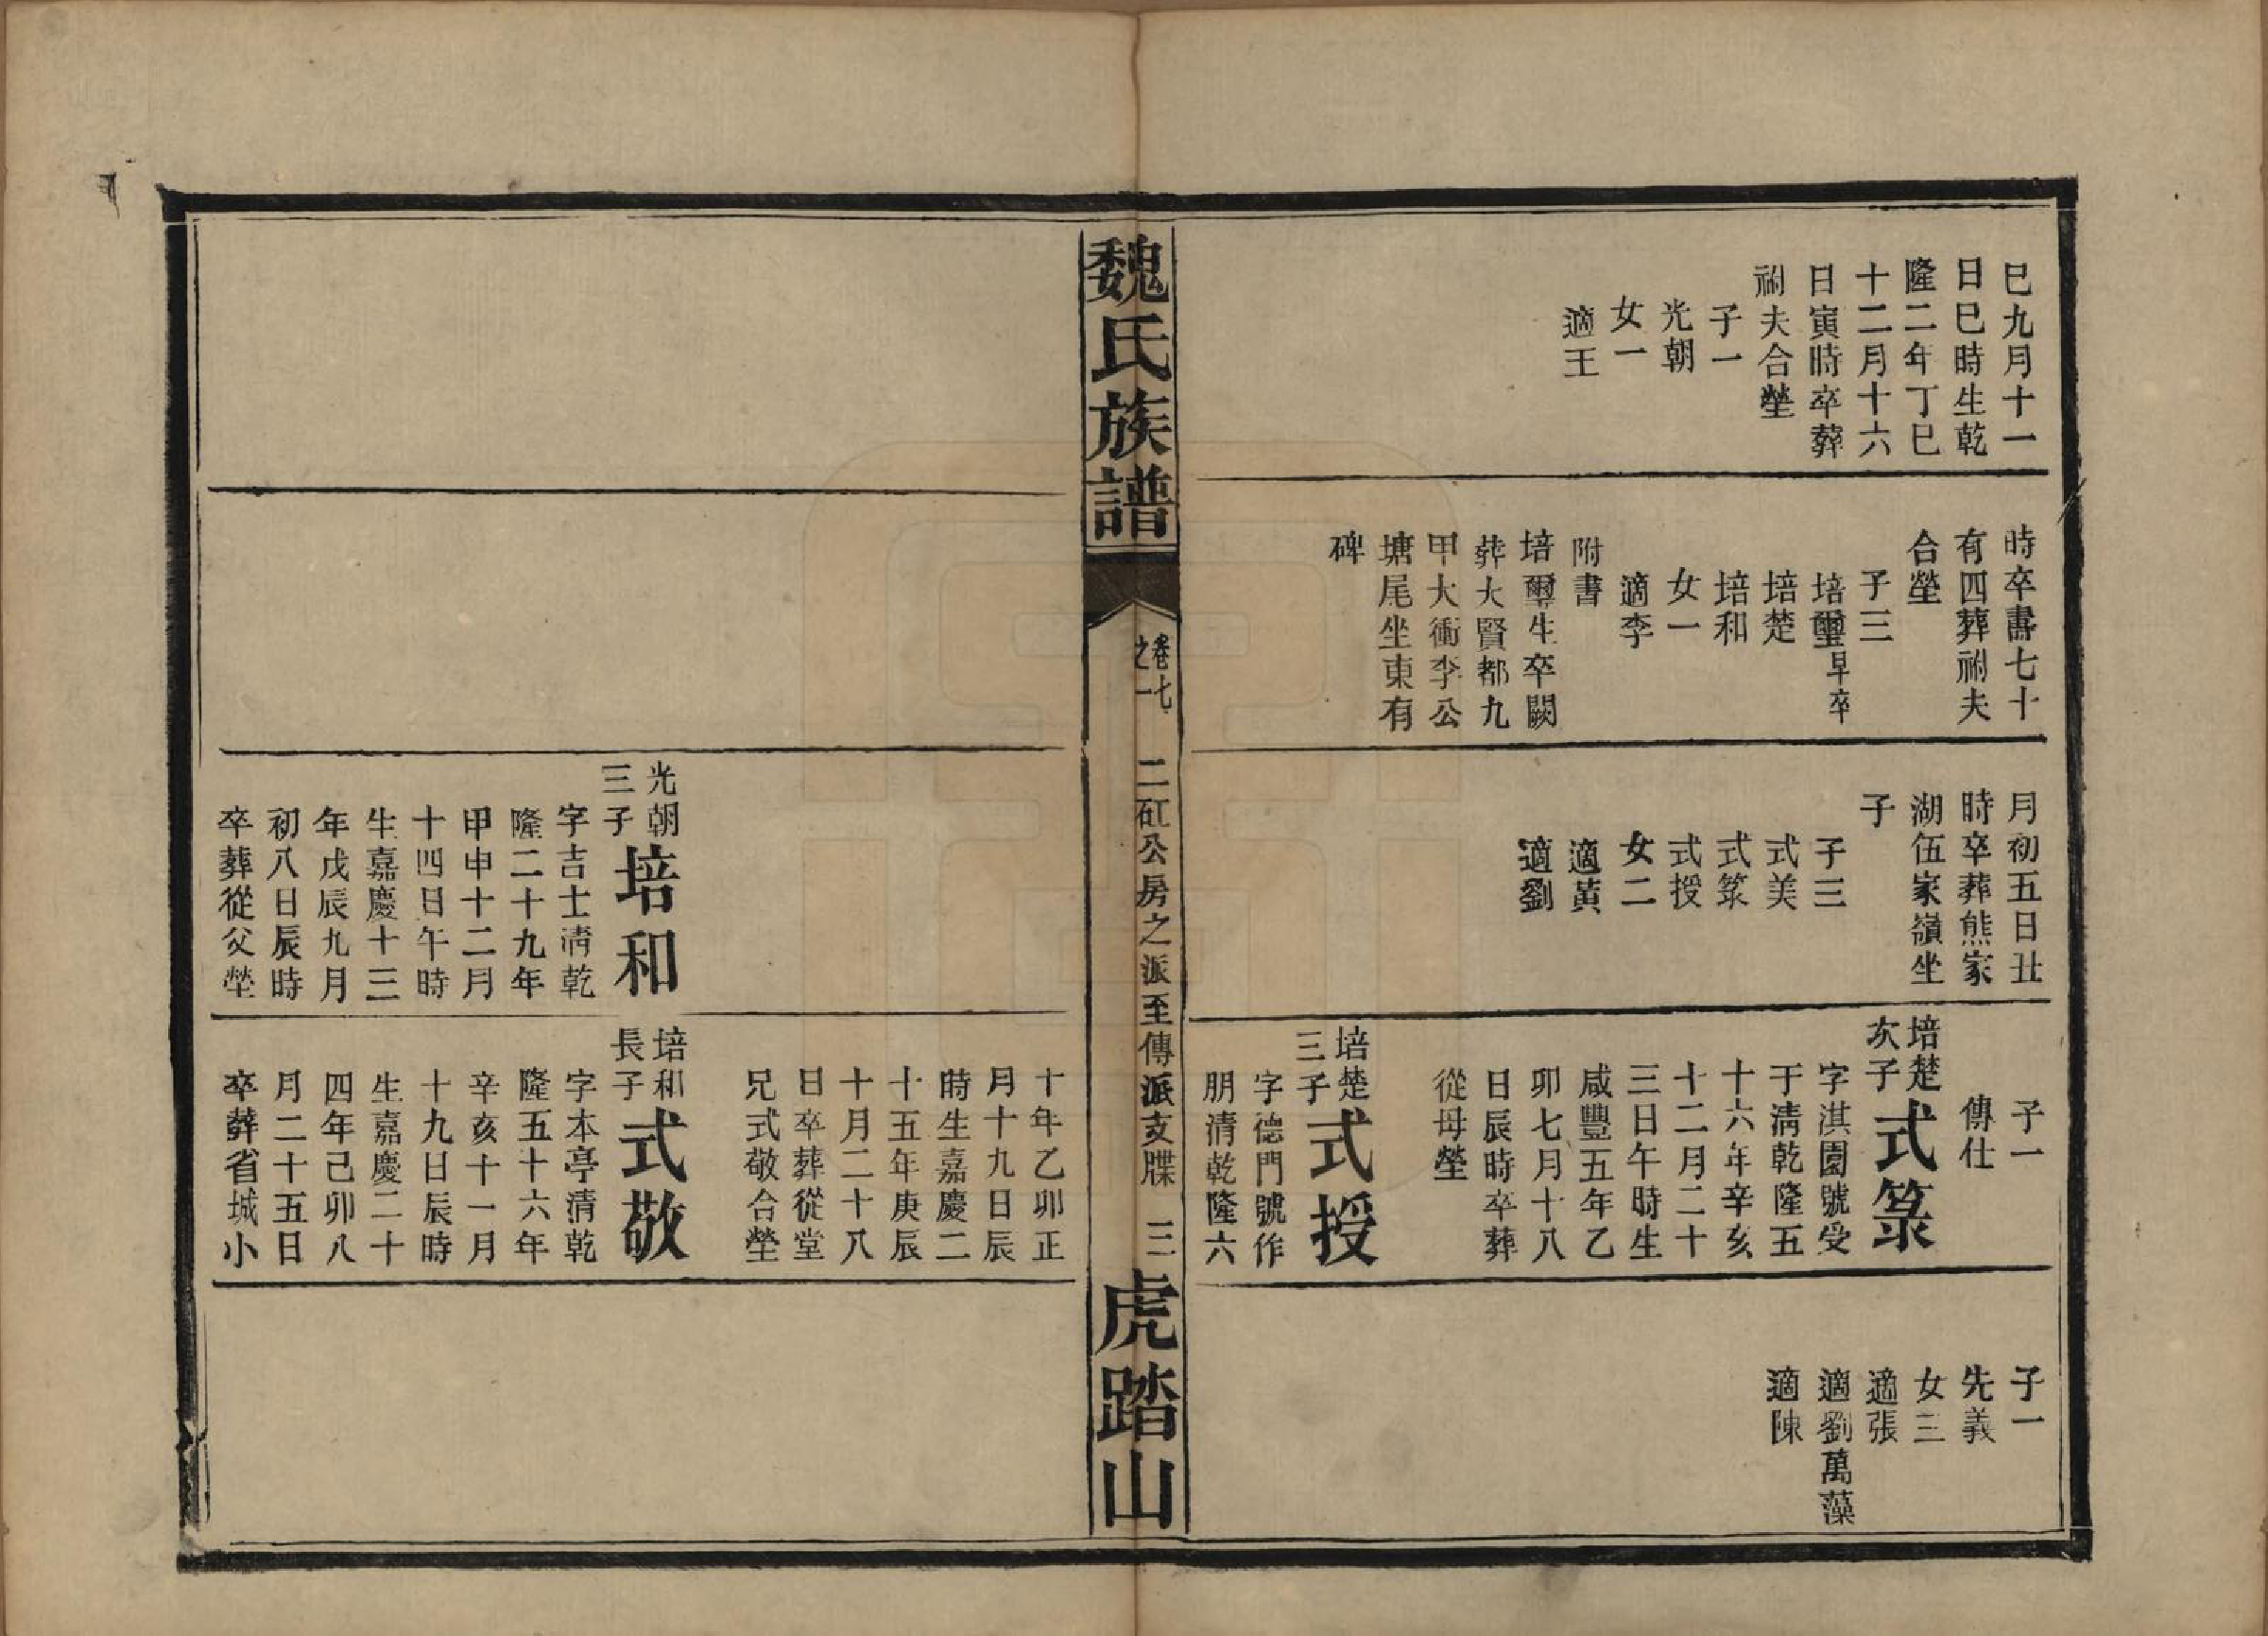 巳九月十一
日巳時生乾
隆二年丁巳
十二月十六
日寅時卒葬
祔夫合塋
子一
光朝
女一
適王
時卒壽七十
有四葬祔夫
合塋
子三
培璽早卒
培楚
培和
女一
適李
附書
培璽生卒闕
葬大賢都九
甲大衝李公
塘尾坐東有
碑
月初五日丑
時卒葬熊家
湖伍家嶺坐
子
子三
式美
式箓
式授
女二
適黃
適劉
子一
傳仕
培楚
次子
式箓
字淇園號受
于清乾隆五
十六年辛亥
十二月二十
三日午時生
咸豐五年乙
卯七月十八
日辰時卒葬
從母塋
培楚
三子
式授
字德門號作
朋清乾隆六
子一
先義
女三
適張
適劉萬藻
適陳
魏氏族譜
卷七
之一
二矼公房之派至傳派支牒
三
虎踏山
光朝
三子
培和
字吉士清乾
隆二十九年
甲申十二月
十四日午時
生嘉慶十三
年戊辰九月
初八日辰時
卒葬從父塋
十年乙卯正
月十九日辰
時生嘉慶二
十五年庚辰
十月二十八
日卒葬從堂
兄式敬合塋
培和
長子
式敬
字本亭清乾
隆五十六年
辛亥十一月
十九日辰時
生嘉慶二十
四年己卯八
月二十五日
卒葬省城小